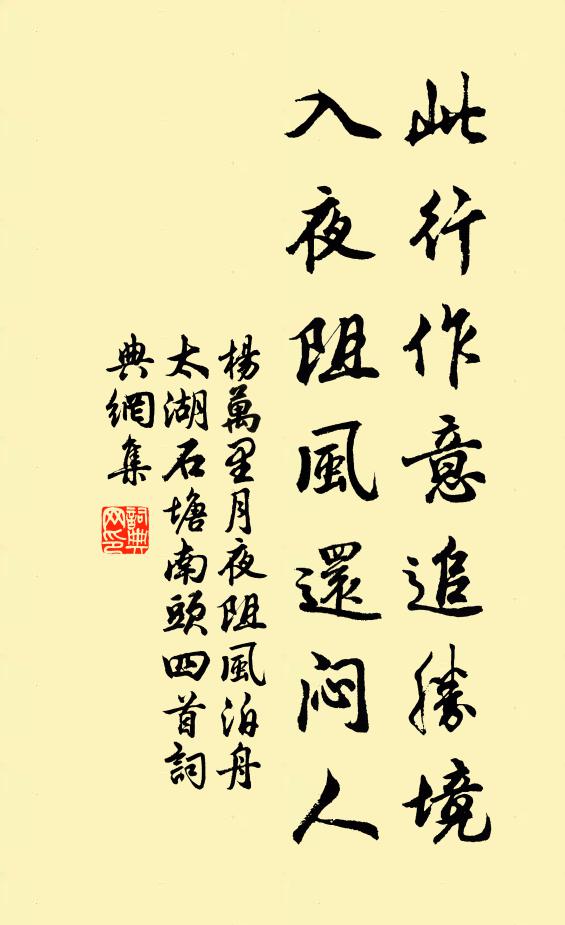 此行作意追勝境
入夜阻風還闷人
楊萬里月夜阻風泊舟
太湖石塘南頭四首詞
典網集
詞典
网印